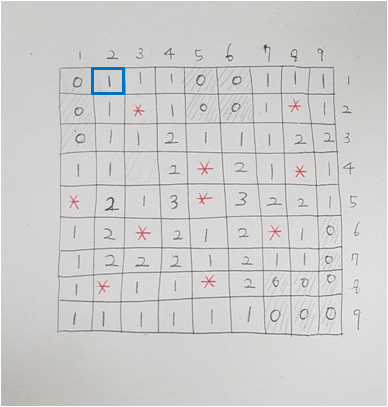 1 2 3 4 5 6 7 8 9
0 1 1 1 0 0 1 1 1 1
0 1 * 1 0 0 1 * 1 2
0 1 1 2 1 1 1 2 2 3
1 1 2 * 2 1 * 1 4
* 2 1 3 * 3 2 2 1 5
1 2 * 2 1 2 * 1 0 6
1 2 2 2 1 2 1 1 0 7
1 * 1 1 * 2 0 0 0 8
1 1 1 1 1 1 0 0 0 9